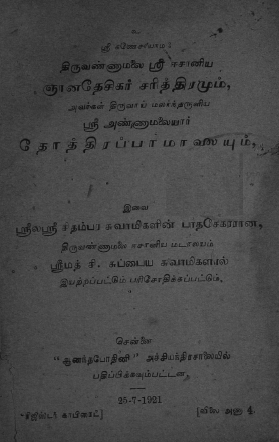 உ
ஸ்ரீ கணேசாயநம:
திருவண்ணாமலை ஸ்ரீ ஈசானிய
ஞானதேசிகர் சரித்திரமும்,
அவர்கள் திருவாய் மலர்ந்தருளிய
ஸ்ரீ அண்ணாமலையார்
தோத்திரப்பாமாலையும்,
இவை
ஸ்ரீலஸ்ரீ சிதம்பர சுவாமிகளின் பாதசேகரரான,
திருவண்ணாமலை ஈசானிய மடாலயம்
ஸ்ரீமத் சி. சுப்பைய சுவாமிகளால்
இயற்றப்பட்டும் பரிசோதிக்கப்பட்டும்,
சென்னை
"ஆனந்தபோதினி" அச்சியந்திரசாலையில்
பதிப்பிக்கவும்பட்டன.
25-7-1921
ரிஜிஸ்டர் காபிரைட்] [விலை அணா 4.